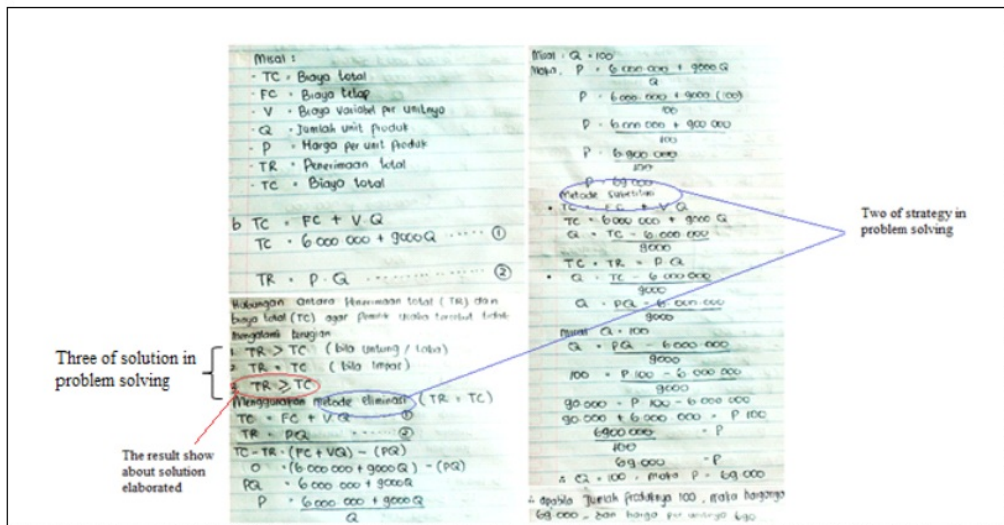 Misal :
- TC = Biaya total
- FC = Biaya tetap
- V = Biaya Variabel per unitnya
- Q = Jumlah unit produk
- P = Harga per unit produk
- TR = Penerimaan total
- TC = Biaya total
b TC = FC + V.Q
TC = 6 000 000 + 9000Q ..... ①
TR = P.Q ............... ②
Hubungan antara Penerimaan total (TR) dan
biaya total (TC) agar usaha tersebut tidak
mengalami kerugian
1. TR > TC (bila untung / laba)
2. TR = TC (bila impas)
3. TR ≥ TC
Menggunakan metode eliminasi (TR = TC)
TC = FC + V.Q ①
TR = PQ ....... ②
TC - TR = (FC + VQ) - (PQ)
0 = (6 000 000 + 9000Q) - (PQ)
PQ = 6 000 000 + 9000Q
P = 6 000 000 + 9000Q
Q
Three of solution in
problem solving
The result show
about solution
elaborated
Misal : Q = 100
Maka, P = 6 000.000 + 9000Q
Q
P = 6 000.000 + 9000 (100)
100
P = 6 000 000 + 900 000
100
P = 6.900 000
100
P = 69.000
Metode
• TC = FC + V Q
TC = 6 000 000 + 9000 Q
Q = TC - 6 000.000
9000
TC = TR = P.Q
• Q = TC - 6 000 000
9000
Q = PQ - 6.000.000
9000
Misal Q = 100
Q = PQ - 6 000.000
9000
100 = P.100 - 6 000 000
9000
90.000 = P 100 - 6 000000
90 000 + 6 000 000 = P 100
6900 000 = P
100
69.000 = P
∴ Q = 100, maka P = 69.000
∴ apabila Jumlah produknya 100, maka harganya
69.000, dan harga per unitnya 690.
Two of strategy in
problem solving